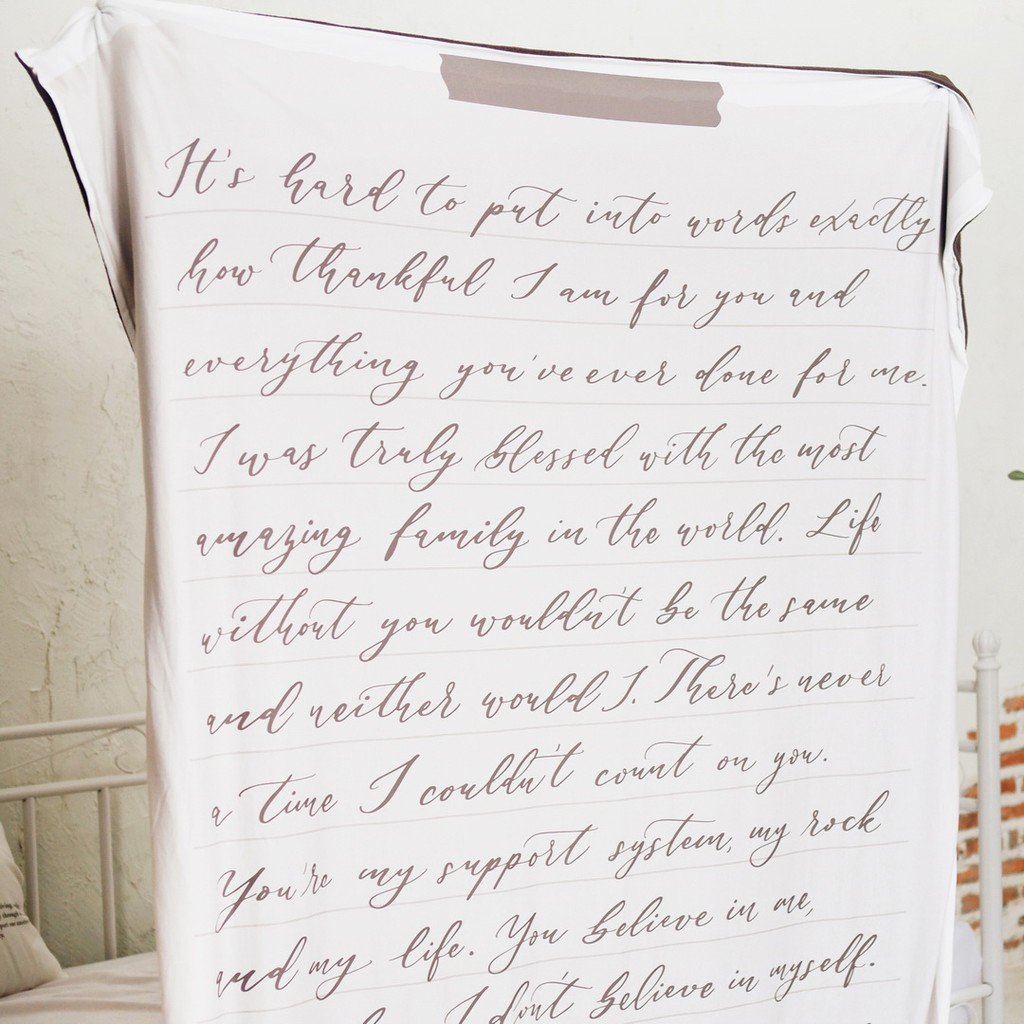 It's hard to put into words exactly
how thankful I am for you and
everything you've ever done for me.
I was truly blessed with the most
amazing family in the world. Life
without you wouldn't be the same
and neither would I. There's never
a time I couldn't count on you.
You're my support system, my rock
and my life. You believe in me,
I don't believe in myself.